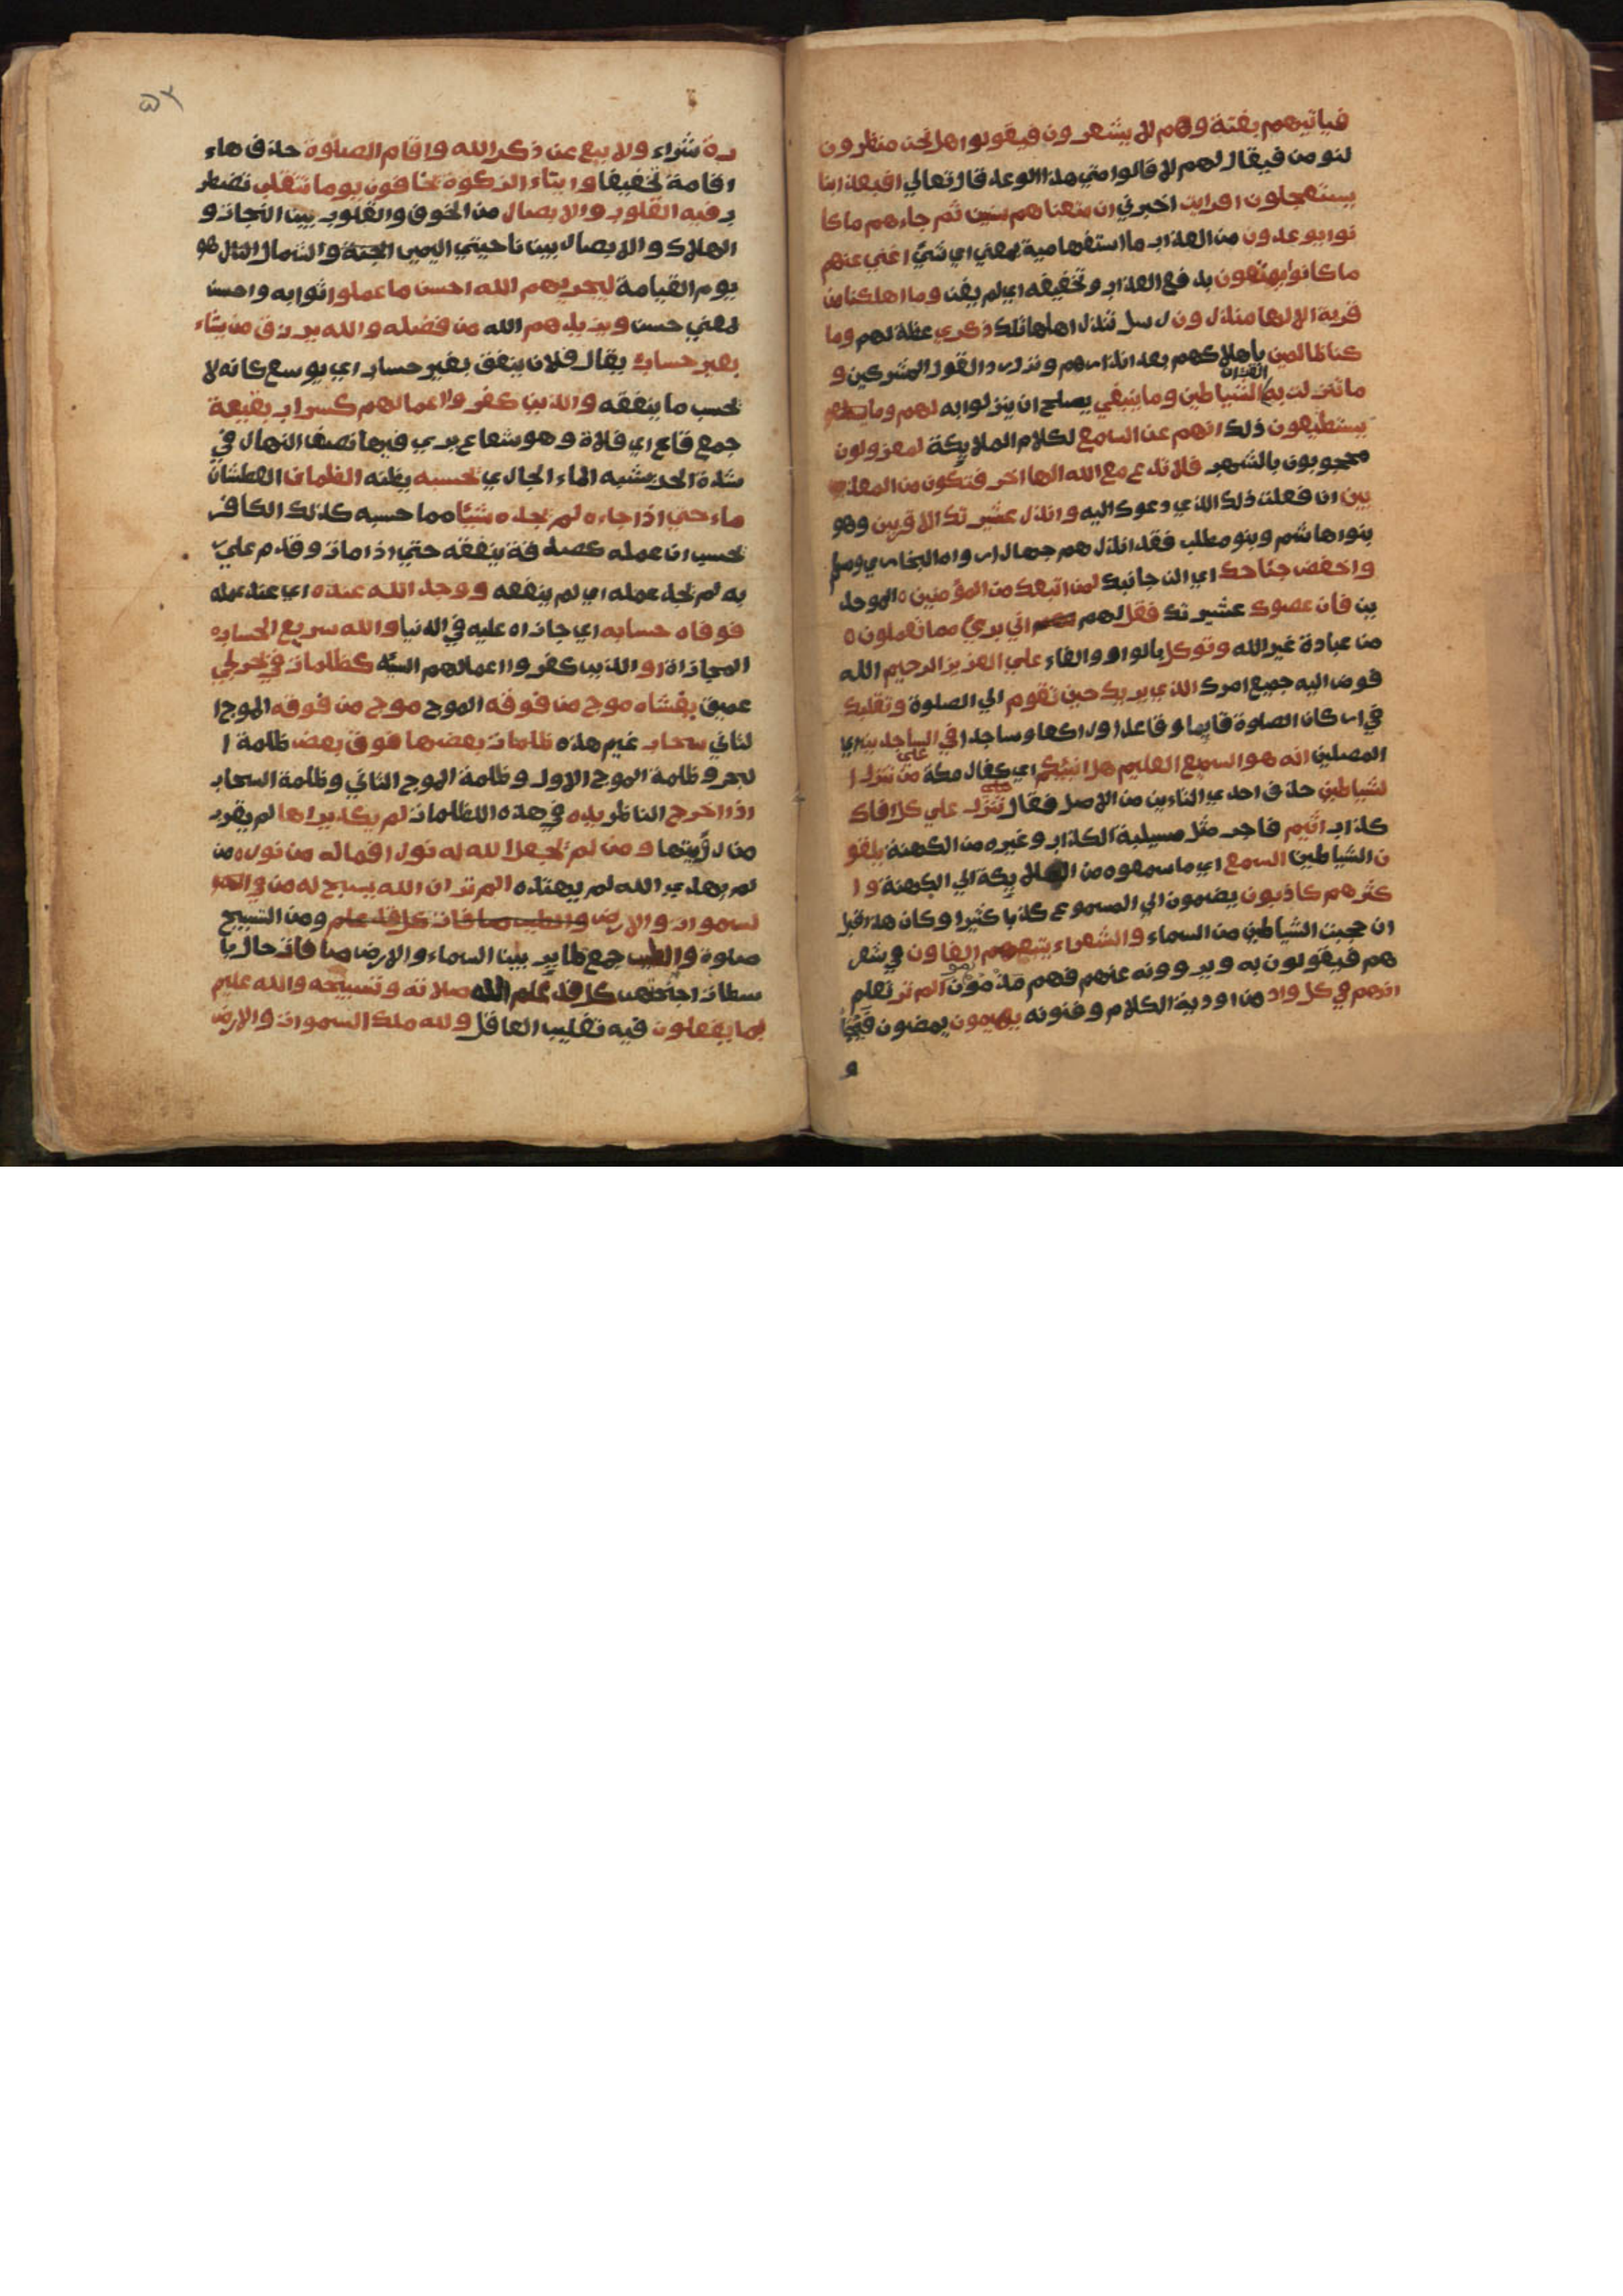 فياتيهم بغتة وهم لا يشعرون فيقولوا هل نحن منظرون
لنومن فيقال لهم لا قالوا متي هذا الوعد قال تعالي افبعذابنا
يستعجلون افرايت اخبرني ان متعناهم سنين ثم جاءهم ما كا
نوا يوعدون من العذاب ما استفهامية بمعني اي شئ اغني عنهم
ما كانوا يمتعون بدفع العذاب وتخفيفه اي لم يغن وما اهلكنا من
قرية الا لها منذرون رسل تنذر اهلها تلك ذكري عظة لهم وما
كنا ظالمين باهلاكهم بعد انذارهم ونزل رد القول المشركين و
ما تنزلت به القران الشياطين وما ينبغي يصلح ان ينزلوا به لهم وما
يستطيعون ذلك انهم عن السمع لكلام الملايكة لمعزولون
محجوبون بالشهب فلا تدع مع الله الها اخر فتكون من المعذ
بين ان فعلت ذلك الذي دعوك اليه وانذر عشيرتك الاقربين وهو
بنوا هاشم وبنو مطلب فقد انذرهم جهارا رواه البخاري ومسلم
واخفض جناحك اي الن جانبك لمن اتبعك من المؤمنين الموحد
ين فان عصوك عشيرتك فقل لهم اني بريء مما تعملون
من عبادة غير الله وتوكل بالواو والفاء علي العزيز الرحيم الله
فوض اليه جميع امرك الذي يريك حين تقوم الي الصلوة وتقلبك
في اركان الصلوة قايما وقاعدا وراكعا وساجدا في الساجدين اي
المصلين انه هو السميع العليم هل انبئكم اي كفار مكة علي من تنزل ا
لشياطين حذف احدي التاءين من الاصل فقال تنزل علي كل افاك
كذاب اثيم فاجر مثل مسيلمة الكذاب وغيره من الكهنة يلقو
ن الشياطين السمع اي ما سمعوه من الملايكة الي الكهنة وا
كثرهم كاذبون يضمون الي المسموع كذبا كثيرا وكان هذا قبل
ان حجبت الشياطين من السماء والشعراء يتبعهم الغاون في شعر
هم فيقولون به ويروونه عنهم فهم مذمومون الم تر تعلم
انهم في كل واد من اودية الكلام وفنونه يهيمون يمضون
و
رة شراء ولا بيع عن ذكر الله واقام الصلوة حذف هاء
اقامة تخفيفا وايتاء الزكوة يخافون يوما تتقلب تضطر
ب فيه القلوب والابصار من الخوف والقلوب بين النجاة و
الهلاك والابصار بين ناحيتي اليمين الجنة والشمال النار هو
يوم القيامة ليجزيهم الله احسن ما عملوا ثوابه واحسن
بمعني حسن ويزيدهم الله من فضله والله يرزق من يشاء
بغير حساب يقال فلان ينفق بغير حساب اي يوسع كانه لا
يحسب ما ينفقه والذين كفروا اعمالهم كسراب بقيعة
جمع قاع اي فلاة وهو شعاع يري فيها نصف النهار في
شدة الحر يشبه الماء الجاري يحسبه يظنه الظمان العطشان
ماء حتي اذا جاءه لم يجده شيئا مما حسبه كذلك الكافر
يحسب ان عمله كصدقة ينفقه حتي اذا مات وقدم علي ر
به لم يجد عمله اي لم ينفعه ووجد الله عنده اي عند عمله
فوفاه حسابه اي جازاه عليه في الدنيا والله سريع الحساب
المجازاة او الذين كفروا اعمالهم السيئة كظلمات في بحر لجي
عميق يغشاه موج من فوقه الموج موج من فوقه الموج ا
لثاني سحاب غيم هذه ظلمات بعضها فوق بعض ظلمة ا
لبحر وظلمة الموج الاول وظلمة الموج الثاني وظلمة السحاب
اذا اخرج الناظر يده في هذه الظلمات لم يكد يراها لم يقرب
من رؤيتها ومن لم يجعل الله له نورا فما له من نور من
لم يهده الله لم يهتد الم تر ان الله يسبح له من في ا
لسموات والارض والطير صافات كل قد علم ومن التسبيح
صلوة والطير جمع طاير بين السماء والارض صافات حال با
سطات اجنحتهن كل قد علم الله صلاته وتسبيحه والله عليم
بما يفعلون فيه تغليب العاقل ولله ملك السموات والارض